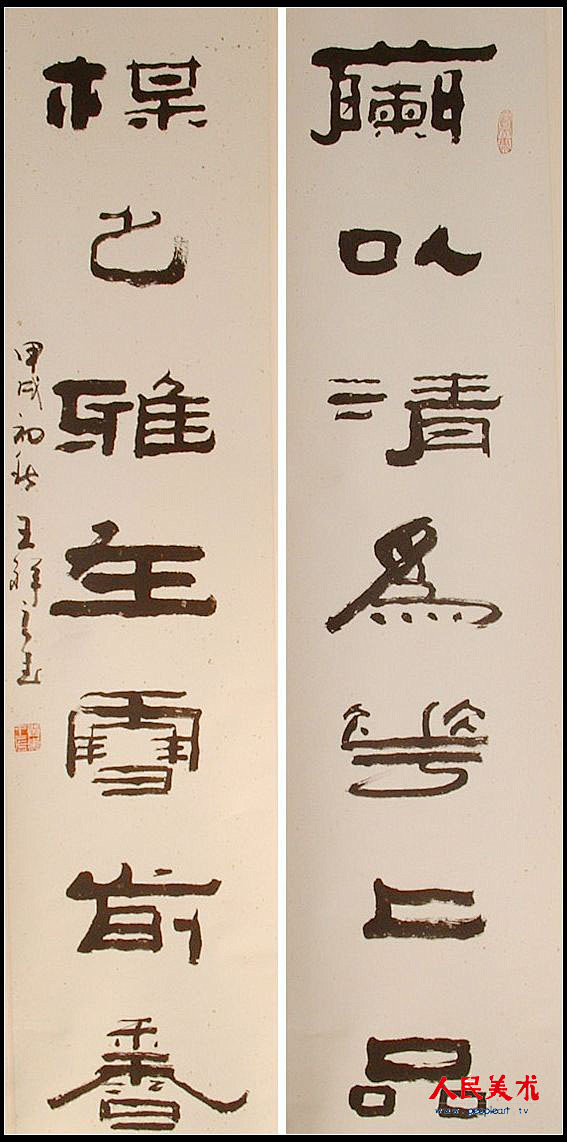 蘭以清爲華上品
楳已雅在雪前香
甲戌初秋 王祥之書
人民美术
www.peopleart.tv